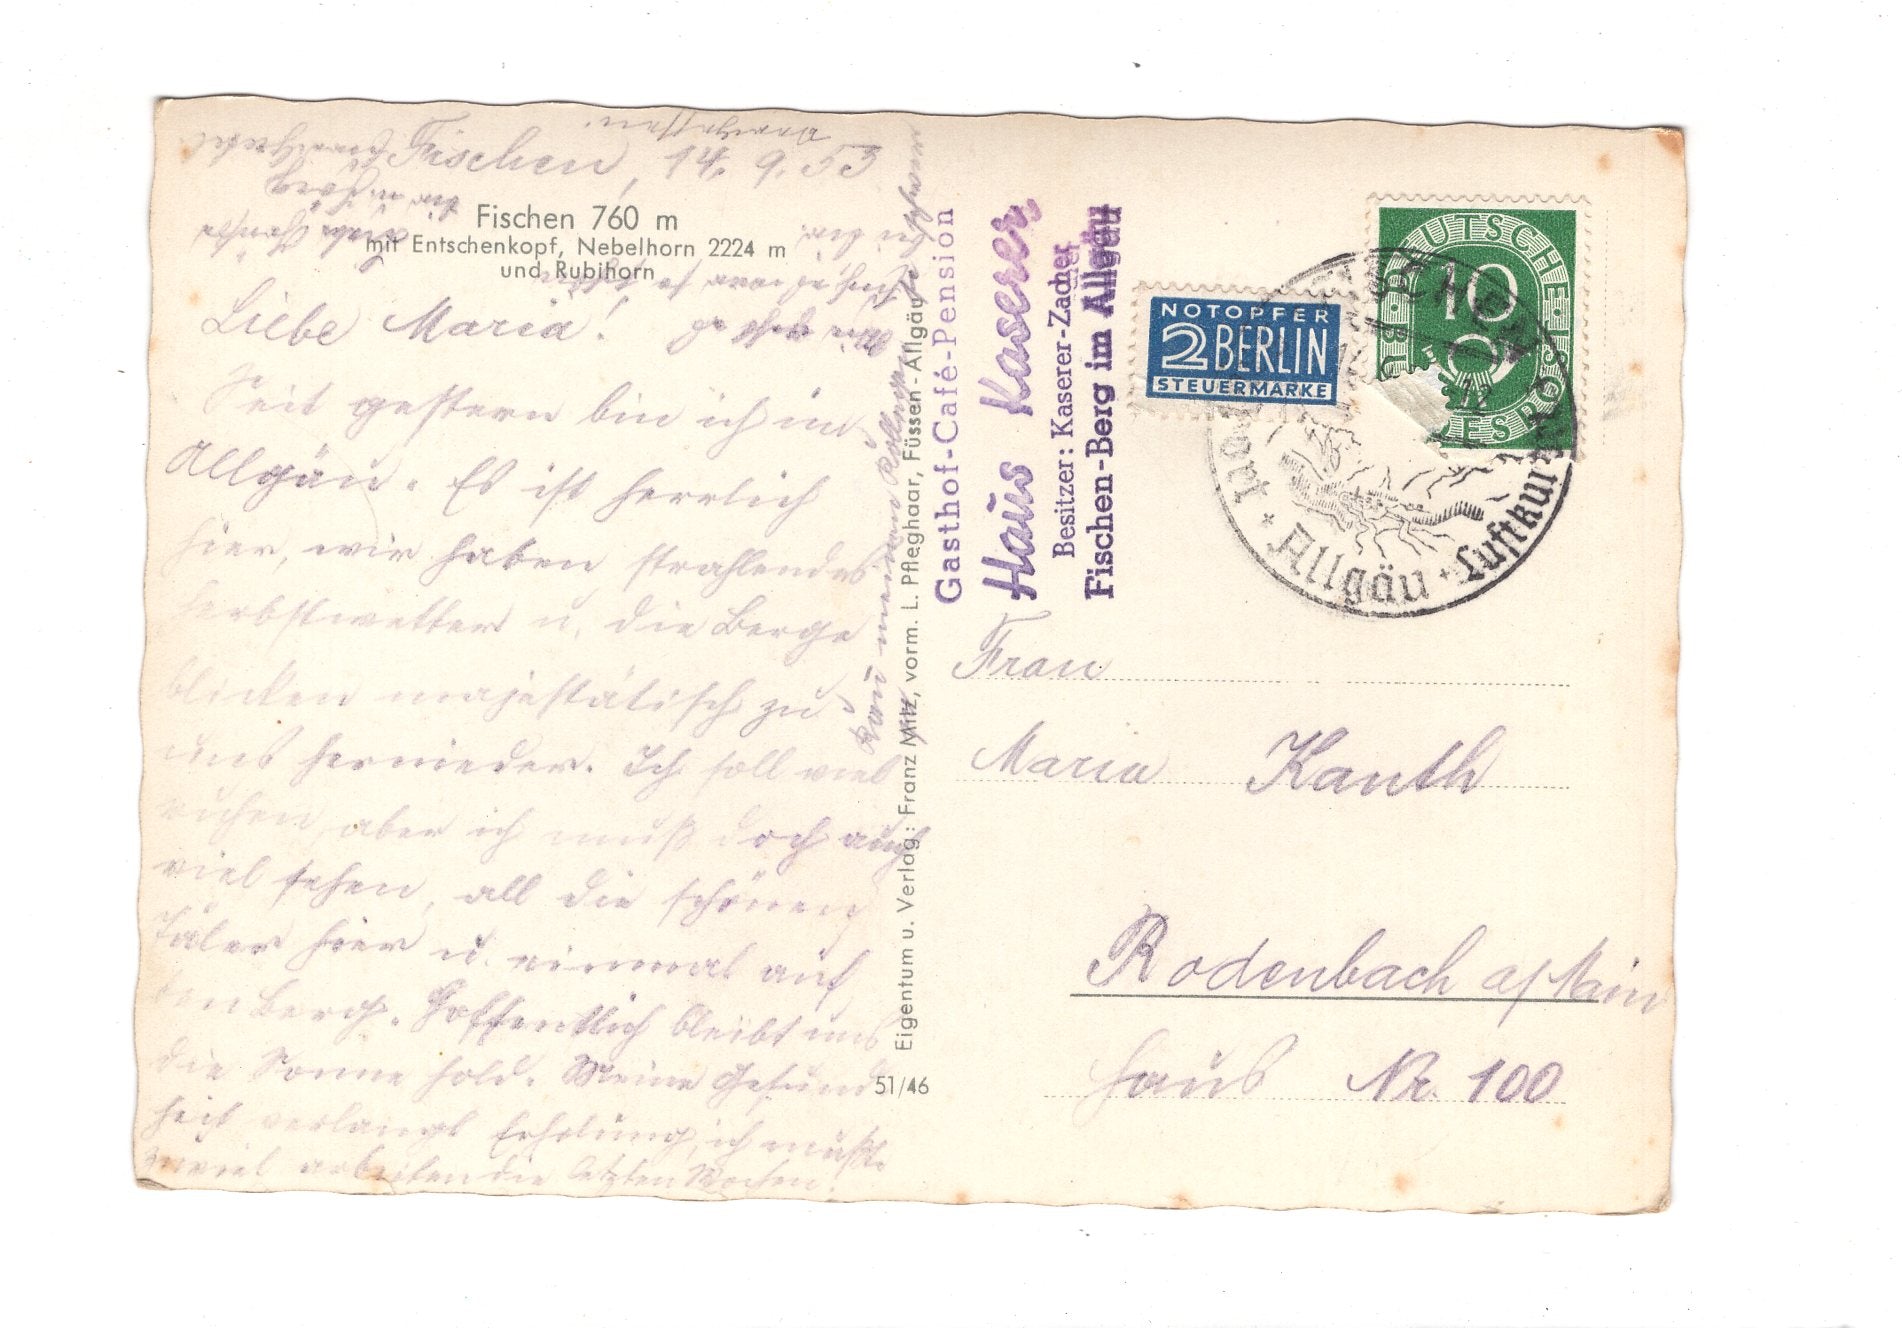 Fischen, 14. 9. 53
Fischen 760 m
mit Entschenkopf, Nebelhorn 2224 m
und Rubihorn
Liebe Maria!
Seit gestern bin ich im
Allgäu. Es ist herrlich
hier, wir haben strahlendes
Herbstwetter u. die Berge
blicken majestätisch zu
uns hernieder. Ich soll viel
ruhen, aber ich muß doch auch
viel sehen, all die schönen
Täler hier u. einmal auf
den Berg. Hoffentlich bleibt uns
die Sonne hold. Meine Gesund
heit verlangt Erholung, ich mußte
zuviel arbeiten die letzten Wochen.
Eigentum u. Verlag: Franz Milz, vorm. L. Pfleghaar, Füssen-Allgäu
51/46
Gasthof-Café-Pension
Haus Kaserer,
Besitzer: Kaserer-Zacher
Fischen-Berg im Allgäu
NOTOPFER
2 BERLIN
STEUERMARKE
DEUTSCHE BUNDESPOST
10
FISCHEN
Allgäu + Luftkurort
Frau
Maria Kauth
Rodenbach a/Main
Haus Nr. 100